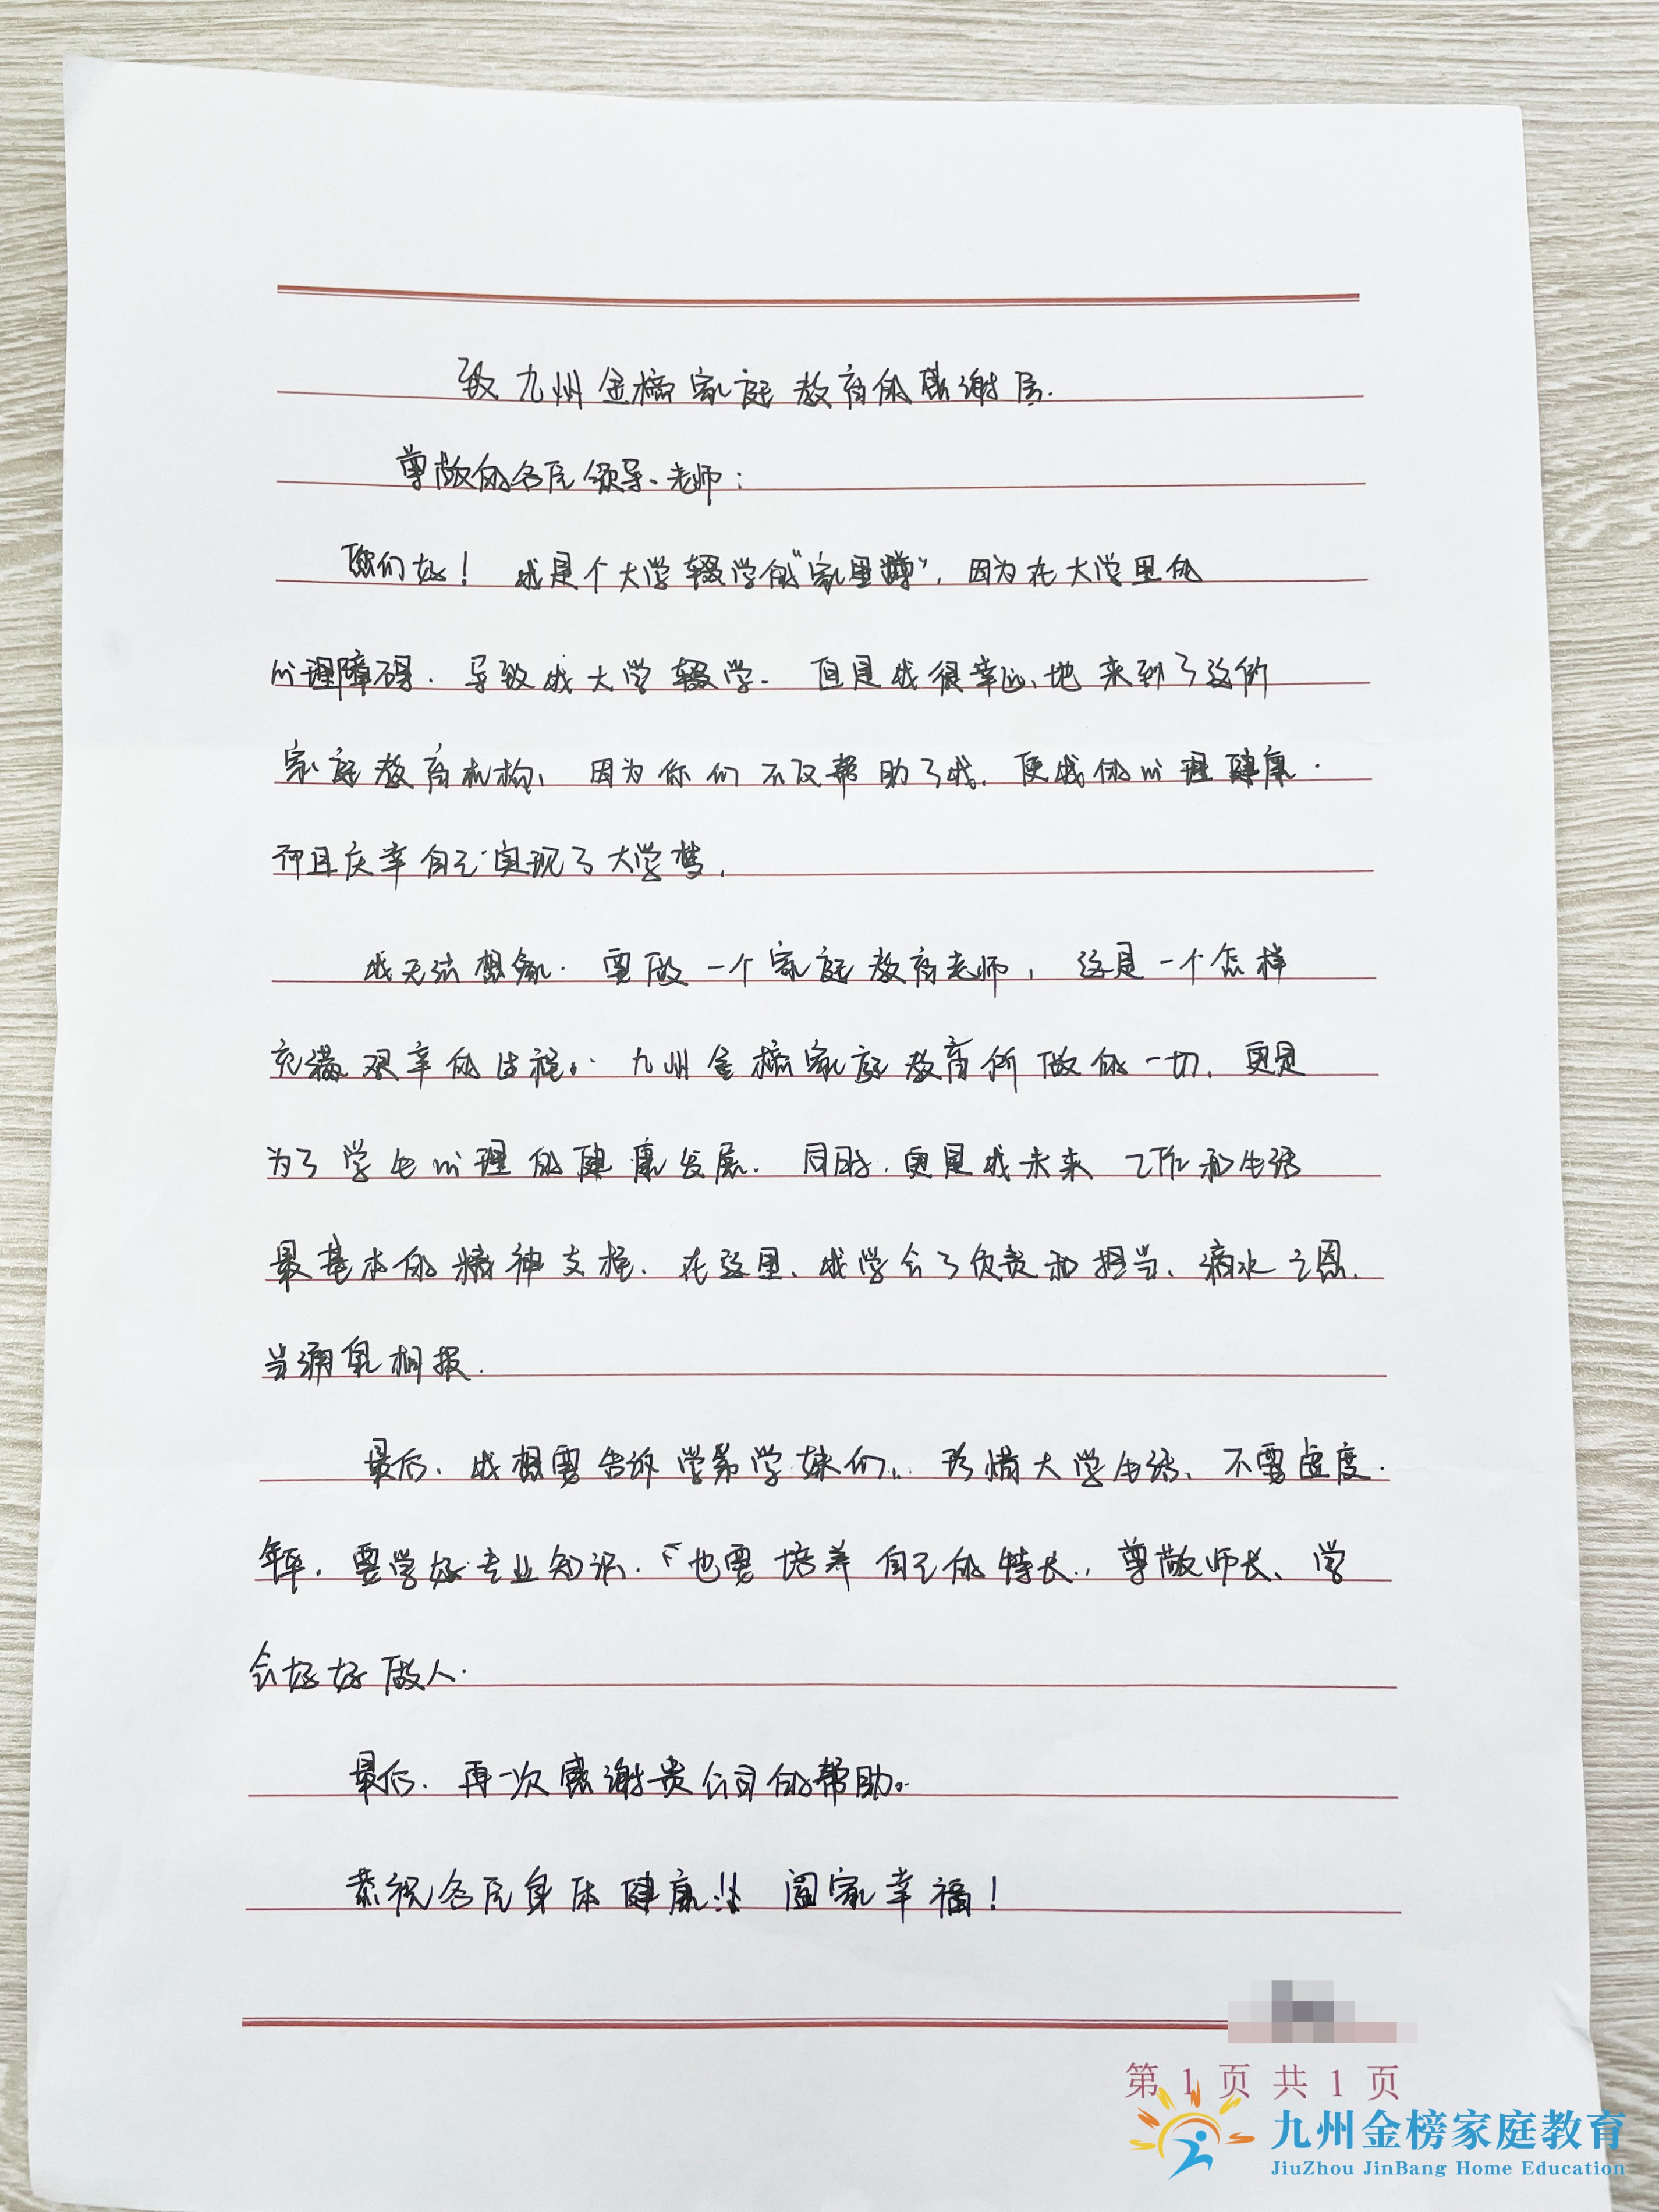 致九州金榜家庭教育的感谢信.
尊敬的各位领导、老师：
你们好！ 我是个大学辍学的“家里蹲”，因为在大学里的
心理障碍，导致我大学辍学。但是我很幸运地来到了这所
家庭教育机构，因为你们不仅帮助了我，使我的心理健康.
而且庆幸自己实现了大学梦，
我无法想象，要做一个家庭教育老师，这是一个怎样
充满艰辛的过程。九州金榜家庭教育所做的一切，更是
为了学生心理的健康发展。同时，更是我未来工作和生活
最基本的精神支撑。在这里，我学会了负责和担当，滴水之恩，
当涌泉相报.
最后，我想要告诉学弟学妹们，珍惜大学生活，不要虚度
年华，要学好专业知识，也要培养自己的特长，尊敬师长、学
会好好做人.
最后，再一次感谢贵公司的帮助。
恭祝各位身体健康！！ 阖家幸福！
第 1 页 共 1 页
九州金榜家庭教育
JiuZhou JinBang Home Education